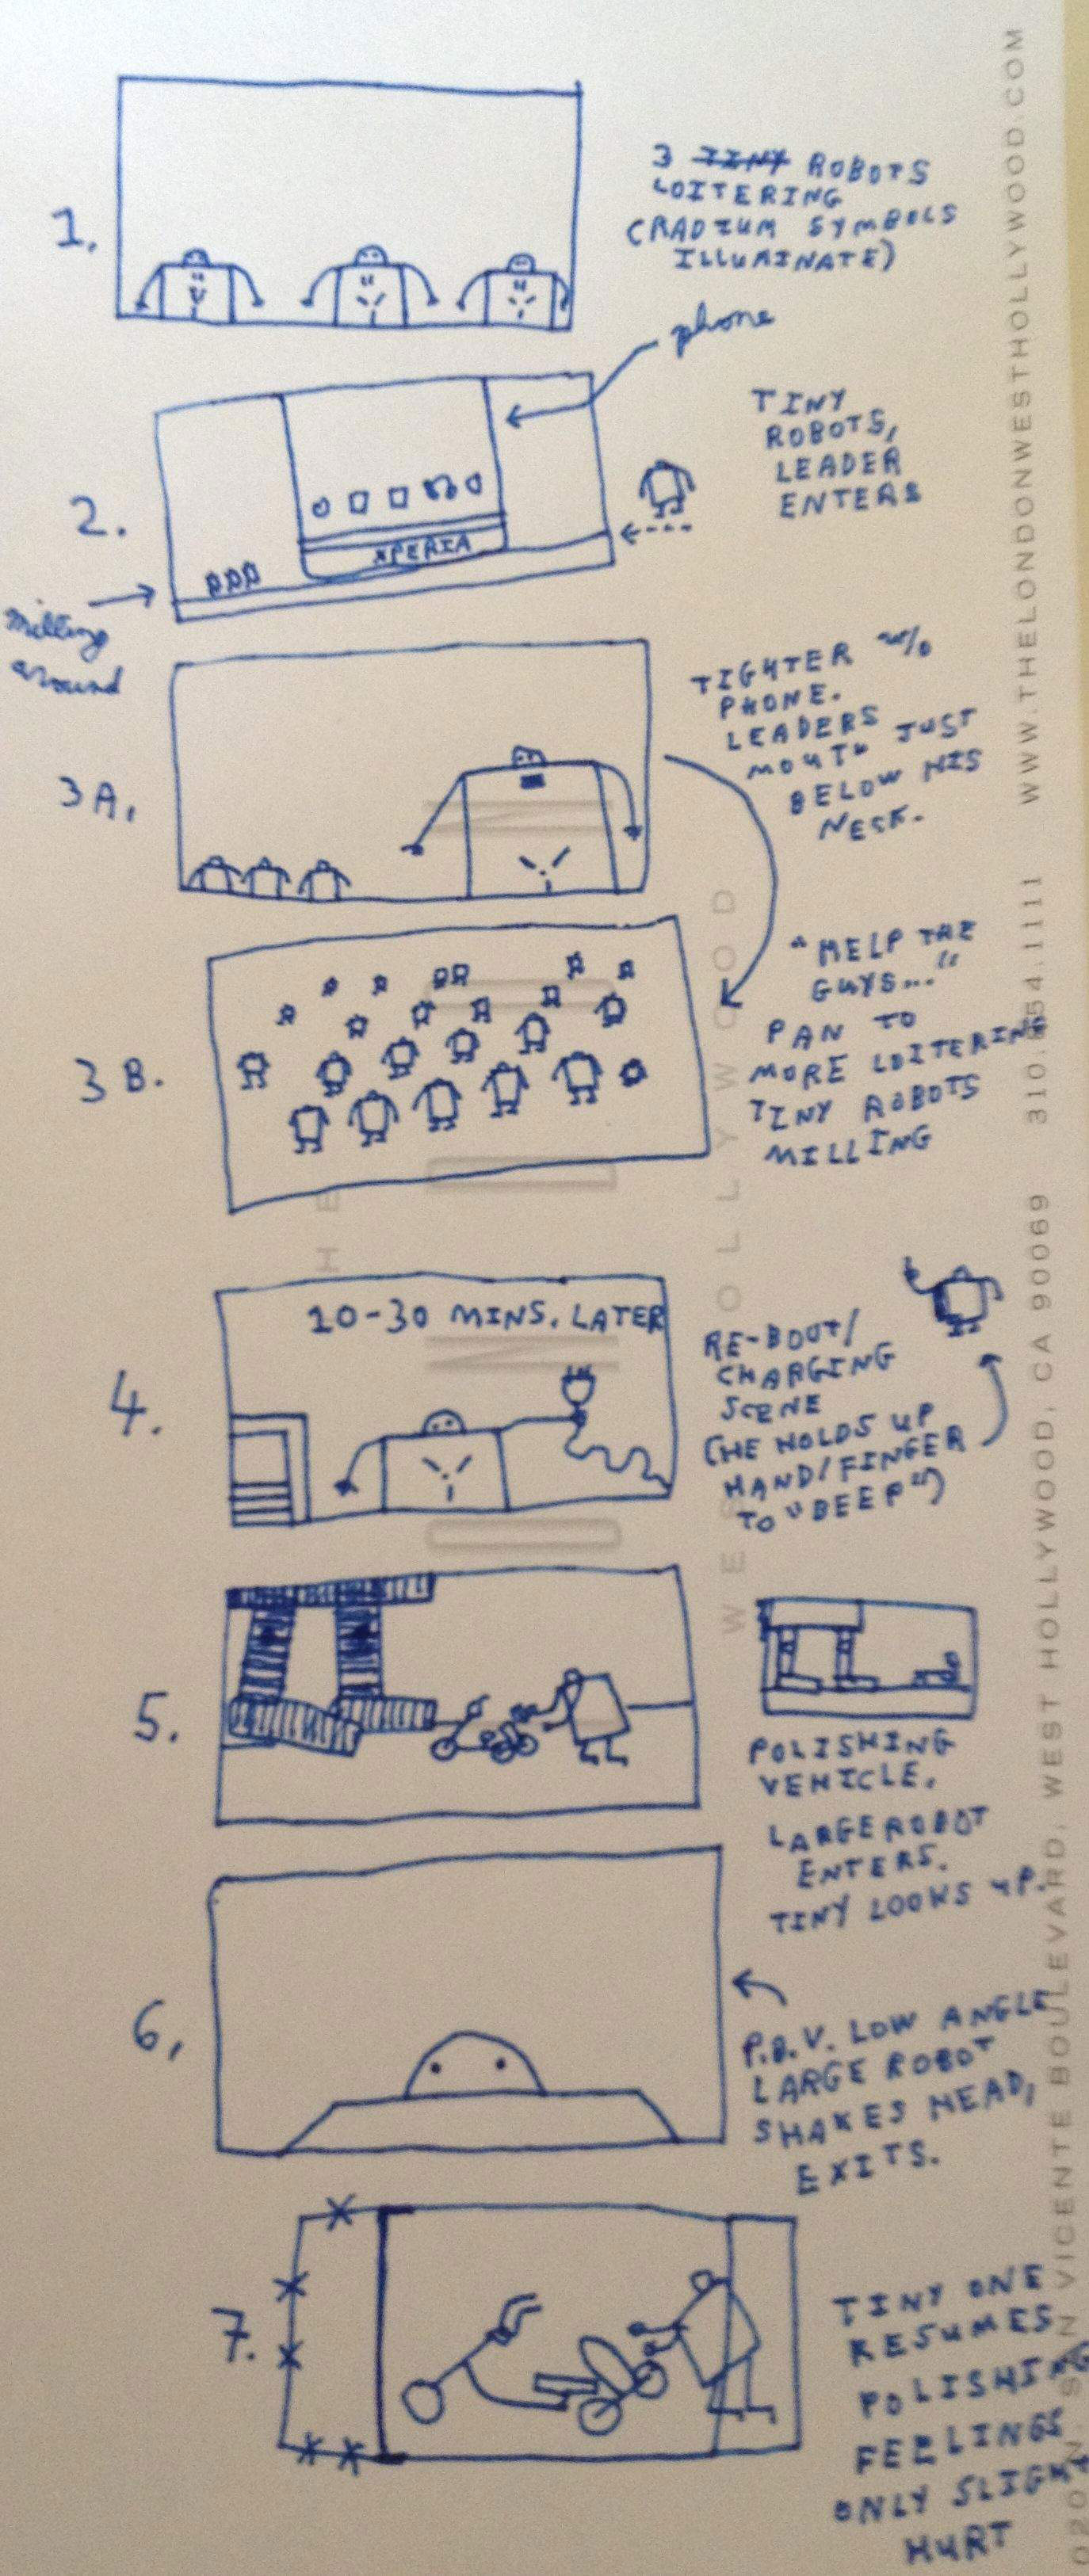 1.
3 TINY ROBOTS
LOITERING
(RADIUM SYMBOLS
ILLUMINATE)
phone
2.
XPERIA
TINY
ROBOTS,
LEADER
ENTERS
milling
around
3A.
TIGHTER w/o
PHONE.
LEADERS
MOUTH JUST
BELOW HIS
NECK.
3B.
"HELP THE
GUYS..."
PAN TO
MORE LOITERING
TINY ROBOTS
MILLING
4.
10-30 MINS. LATER
RE-BOOT/
CHARGING
SCENE
(HE HOLDS UP
HAND/FINGER
TO "BEEP")
5.
POLISHING
VEHICLE.
LARGE ROBOT
ENTERS.
TINY LOOKS UP.
6.
P.O.V. LOW ANGLE
LARGE ROBOT
SHAKES HEAD,
EXITS.
7.
TINY ONE
RESUMES
POLISHING
FEELINGS
ONLY SLIGHT
HURT
WEST HOLLYWOOD
020 N. SAN VICENTE BOULEVARD, WEST HOLLYWOOD, CA 90069 310.854.1111 WWW.THELONDONWESTHOLLYWOOD.COM